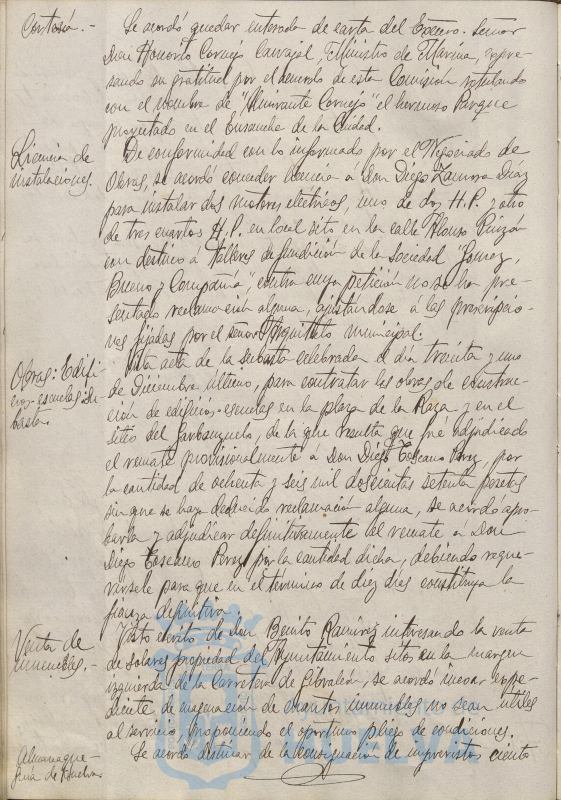 Cortesía.- Se acordó quedar enterado de carta del Excmo. Señor
Don Honorio Cornejo Carvajal, Ministro de Marina, expre-
sando su gratitud por el acuerdo de esta Comisión rotulando
con el nombre de "Almirante Cornejo" el hermoso Parque
proyectado en el Ensanche de la Ciudad.
Licencia de De conformidad con lo informado por el Negociado de
instalaciones. Obras, se acordó conceder licencia a Don Diego Zamora Díaz
para instalar dos motores electricos, uno de dos H.P. y otro
de tres cuartos H.P. en local sito en la calle Alonso Pinzón
con destino a talleres de fundición de la Sociedad "Gomez,
Bueno y Compañía", contra cuya petición no se ha pre-
sentado reclamación alguna, ajustandose a las prescripcio-
nes fijadas por el señor Arquitecto municipal.
Obras: Edifi- Vista acta de la subasta celebrada el dia treinta y uno
cios-escuelas Su- de Diciembre último, para contratar las obras de construc-
basta. ción de edificios-escuelas en la plaza de la Raza y en el
sitio del Garbanzuelo, de la que resulta que fué adjudicado
el remate provisionalmente a Don Diego Toscano Perez, por
la cantidad de ochenta y seis mil doscientas setenta pesetas
sin que se haya deducido reclamación alguna, se acordó apro-
barla y adjudicar definitivamente el remate a Don
Diego Toscano Perez por la cantidad dicha, debiendo reque-
rirsele para que en el termino de diez dias constituya la
fianza definitiva.
Venta de Visto escrito de Don Benito Ramirez interesando la venta
inmuebles.- de solares propiedad del Ayuntamiento sitos en la margen
izquierda de la Carretera de Gibraleón, se acordó incoar expe-
diente de enagenación de cuantos inmuebles no sean utiles
al servicio, proponiendo el oportuno pliego de condiciones.
Almanaque- Se acordó destinar de la consignación de imprevistos ciento
guia de Huelva